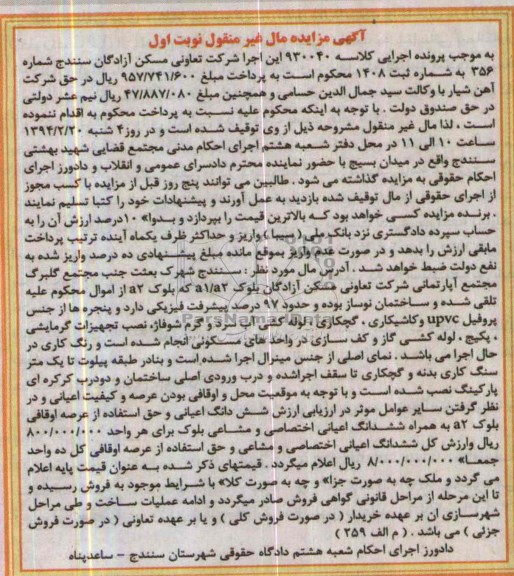 آگهی مزایده مال غیر منقول نوبت اول
به موجب پرونده اجرایی کلاسه ۹۳۰۰۴۰ این اجرا شرکت تعاونی مسکن آزادگان سنندج شماره
۳۵۶ به شماره ثبت ۱۴۰۸ محکوم است به پرداخت مبلغ ۹۵۷/۷۴۱/۶۰۰ ریال در حق شرکت
آهن شیار با وکالت سید جمال الدین حسامی و همچنین مبلغ ۴۷/۸۸۷/۰۸۰ ریال نیم عشر دولتی
در حق صندوق دولت . با توجه به اینکه محکوم علیه نسبت به پرداخت محکوم به اقدام ننموده
است ، لذا مال غیر منقول مشروحه ذیل از وی توقیف شده است و در روز ۴ شنبه ۱۳۹۴/۲/۳۰
ساعت ۱۰ الی ۱۱ در محل دفتر شعبه هشتم اجرای احکام مدنی مجتمع قضایی شهید بهشتی
سنندج واقع در میدان بسیج با حضور نماینده محترم دادسرای عمومی و انقلاب و دادورز اجرای
احکام حقوقی به مزایده گذاشته می شود . طالبین می توانند پنج روز قبل از مزایده با کسب مجوز
از اجرای حقوقی از مال توقیف شده بازدید به عمل آورند و پیشنهادات خود را کتبا تسلیم نمایند
. برنده مزایده کسی خواهد بود که بالاترین قیمت را بپردازد و بدوا» ۱۰درصد ارزش آن را به
حساب سپرده دادگستری نزد بانک ملی ( سیبا ) واریز و حداکثر ظرف یکماه آینده ترتیب پرداخت
مابقی ارزش را بدهد و در صورت عدم واریز بموقع مانده مبلغ پیشنهادی ده درصد واریز شده به
نفع دولت ضبط خواهد شد . آدرس مال مورد نظر : سنندج شهرک بعثت جنب مجتمع گلبرگ
مجتمع آپارتمانی شرکت تعاونی مسکن آزادگان بلوک a1/a2 که بلوک a2 از اموال محکوم علیه
تلقی شده و ساختمان نوساز بوده و حدود ۹۷ درصد پیشرفت فیزیکی دارد و پنجره ها از جنس
پروفیل upvc وکاشیکاری ، گچکاری ، لوله کشی آب سرد و گرم شوفاژ، نصب تجهیزات گرمایشی
، پکیج ، لوله کشی گاز و کف سازی در واحد های مسکونی انجام شده است و رنگ کاری در
حال اجرا می باشد . نمای اصلی از جنس مینرال اجرا شده است و بنادر طبقه پیلوت تا یک متر
سنگ کاری بدنه و گچکاری تا سقف اجراشده و درب ورودی اصلی ساختمان و دودرب کرکره ای
پارکینگ نصب شده است و با توجه به موقعیت محل و اوقافی بودن عرصه و کیفیت اعیانی و در
نظر گرفتن سایر عوامل موثر در ارزیابی ارزش شش دانگ اعیانی و حق استفاده از عرصه اوقافی
بلوک a2 به همراه ششدانگ اعیانی اختصاصی و مشاعی بلوک برای هر واحد ۸۰۰/۰۰۰/۰۰۰
ریال وارزش کل ششدانگ اعیانی اختصاصی و مشاعی و حق استفاده از عرصه اوقافی کل ده واحد
جمعا» ۸/۰۰۰/۰۰۰/۰۰۰ ریال اعلام میگردد . قیمتهای ذکر شده به عنوان قیمت پایه اعلام
می گردد و ملک چه به صورت جزا» و چه به صورت کلا» با شرایط موجود به فروش رسیده و
تا این مرحله از مراحل قانونی گواهی فروش صادر میگردد و ادامه عملیات ساخت و طی مراحل
شهرسازی ان بر عهده خریدار ( در صورت فروش کلی ) و یا بر عهده تعاونی ( در صورت فروش
جزئی ) می باشد . ( م الف ۲۵۹ )
دادورز اجرای احکام شعبه هشتم دادگاه حقوقی شهرستان سنندج - ساعدپناه
ParsNamadData